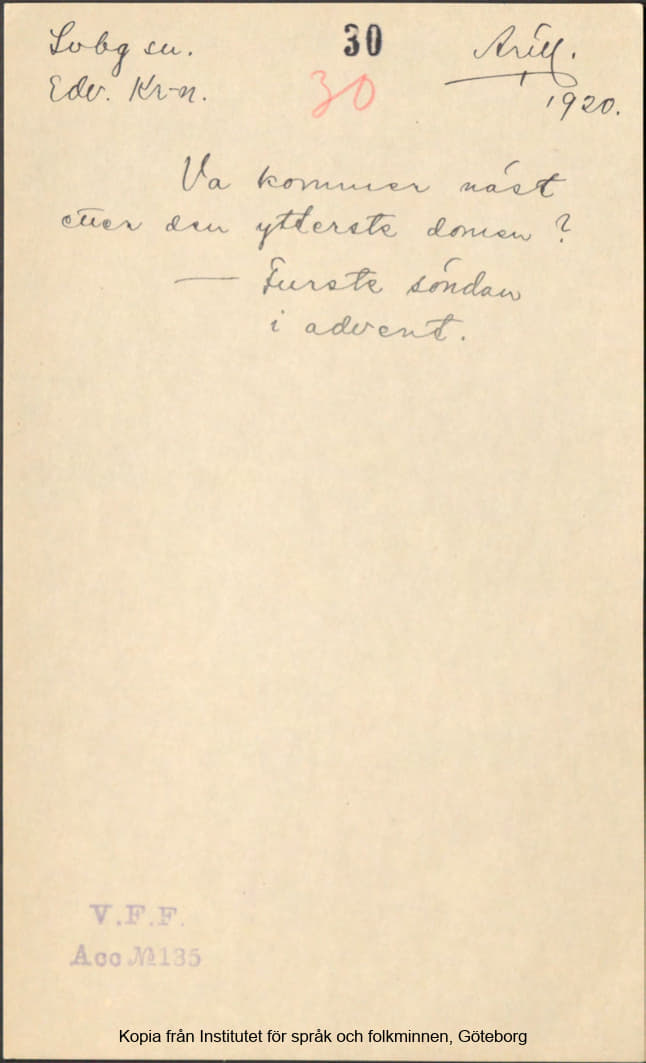 Svbg sn. 30 Arill.
Edv. Kr-n. 30 1920.
Va kommer näst
etter den ytterste domen?
— Furste söndan
i advent.
V.F.F.
Acc № 135
Kopia från Institutet för språk och folkminnen, Göteborg